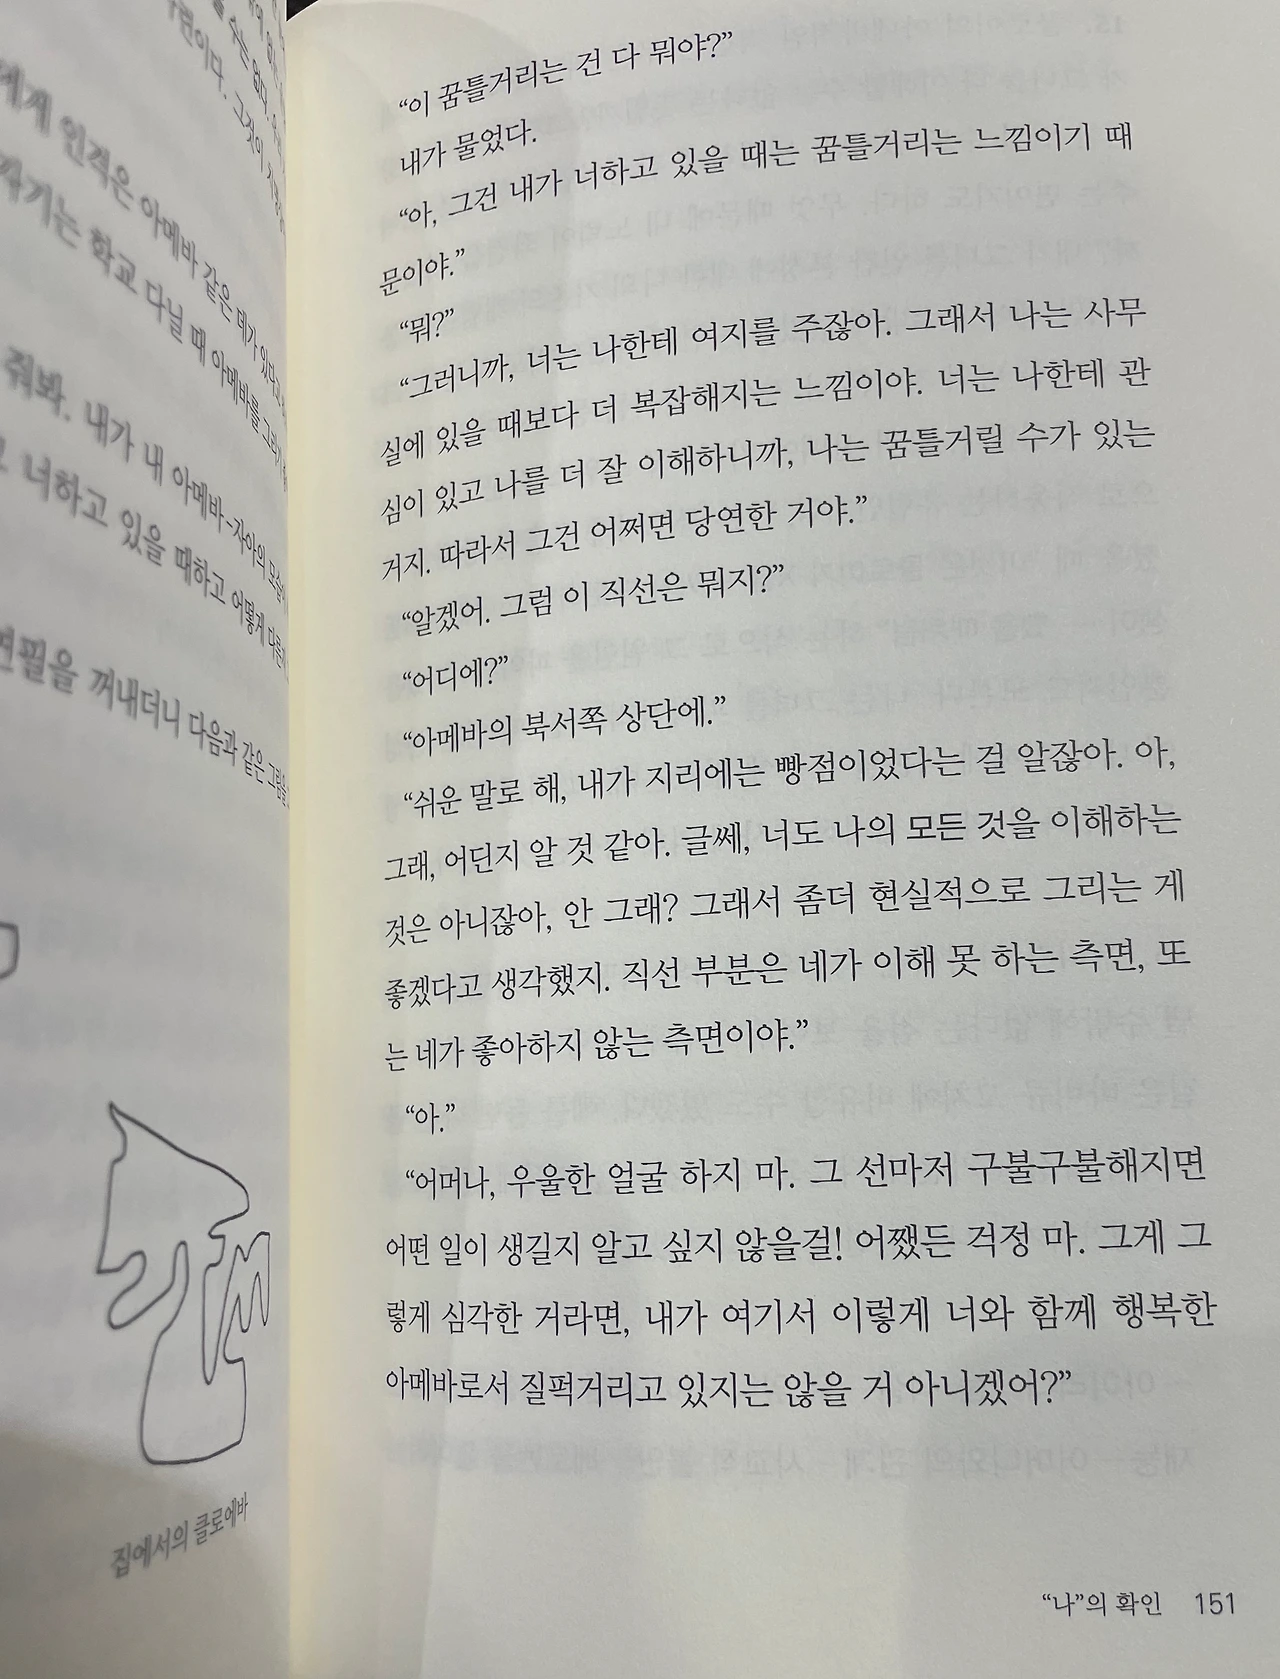 수는 없다.
그것이
에게 인격은 아메바 같은 데가 있다고
자기는 학교 다닐 때 아메바를 그리기
줘봐. 내가 내 아메바-자아의 모습이
너하고 있을 때하고 어떻게 다른지
연필을 꺼내더니 다음과 같은 그림을
집에서의 클로에바
“이 꿈틀거리는 건 다 뭐야?”
내가 물었다.
“아, 그건 내가 너하고 있을 때는 꿈틀거리는 느낌이기 때
문이야.”
“뭐?”
“그러니까, 너는 나한테 여지를 주잖아. 그래서 나는 사무
실에 있을 때보다 더 복잡해지는 느낌이야. 너는 나한테 관
심이 있고 나를 더 잘 이해하니까, 나는 꿈틀거릴 수가 있는
거지. 따라서 그건 어쩌면 당연한 거야.”
“알겠어. 그럼 이 직선은 뭐지?”
“어디에?”
“아메바의 북서쪽 상단에.”
“쉬운 말로 해, 내가 지리에는 빵점이었다는 걸 알잖아. 아,
그래, 어딘지 알 것 같아. 글쎄, 너도 나의 모든 것을 이해하는
것은 아니잖아, 안 그래? 그래서 좀더 현실적으로 그리는 게
좋겠다고 생각했지. 직선 부분은 네가 이해 못 하는 측면, 또
는 네가 좋아하지 않는 측면이야.”
“아.”
“어머나, 우울한 얼굴 하지 마. 그 선마저 구불구불해지면
어떤 일이 생길지 알고 싶지 않을걸! 어쨌든 걱정 마. 그게 그
렇게 심각한 거라면, 내가 여기서 이렇게 너와 함께 행복한
아메바로서 질퍽거리고 있지는 않을 거 아니겠어?”
“나”의 확인 151